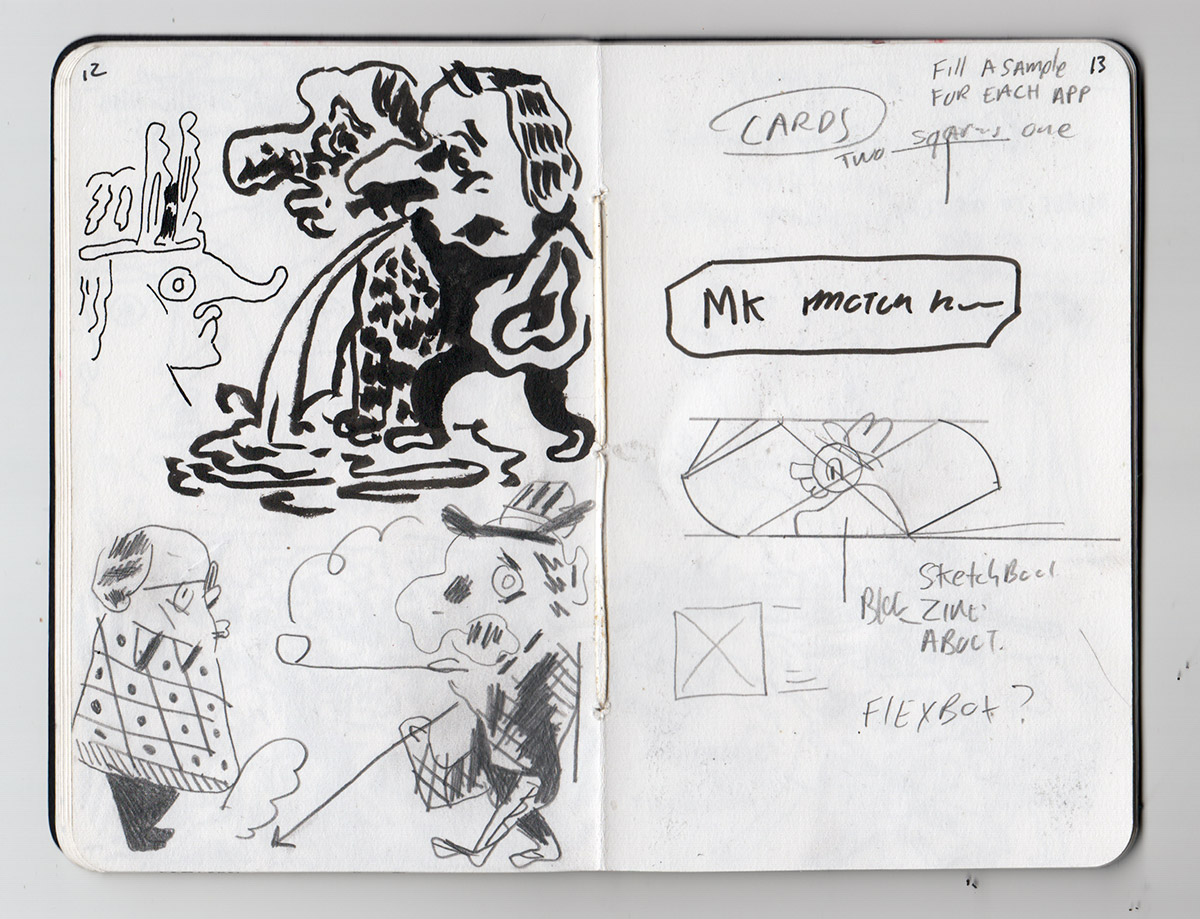 12
13
Fill A SAMPLE
FOR EACH APP
CARDS
TWO one
MK
SketchBook
Blog Zine
ABOUT.
FlEXBOX?